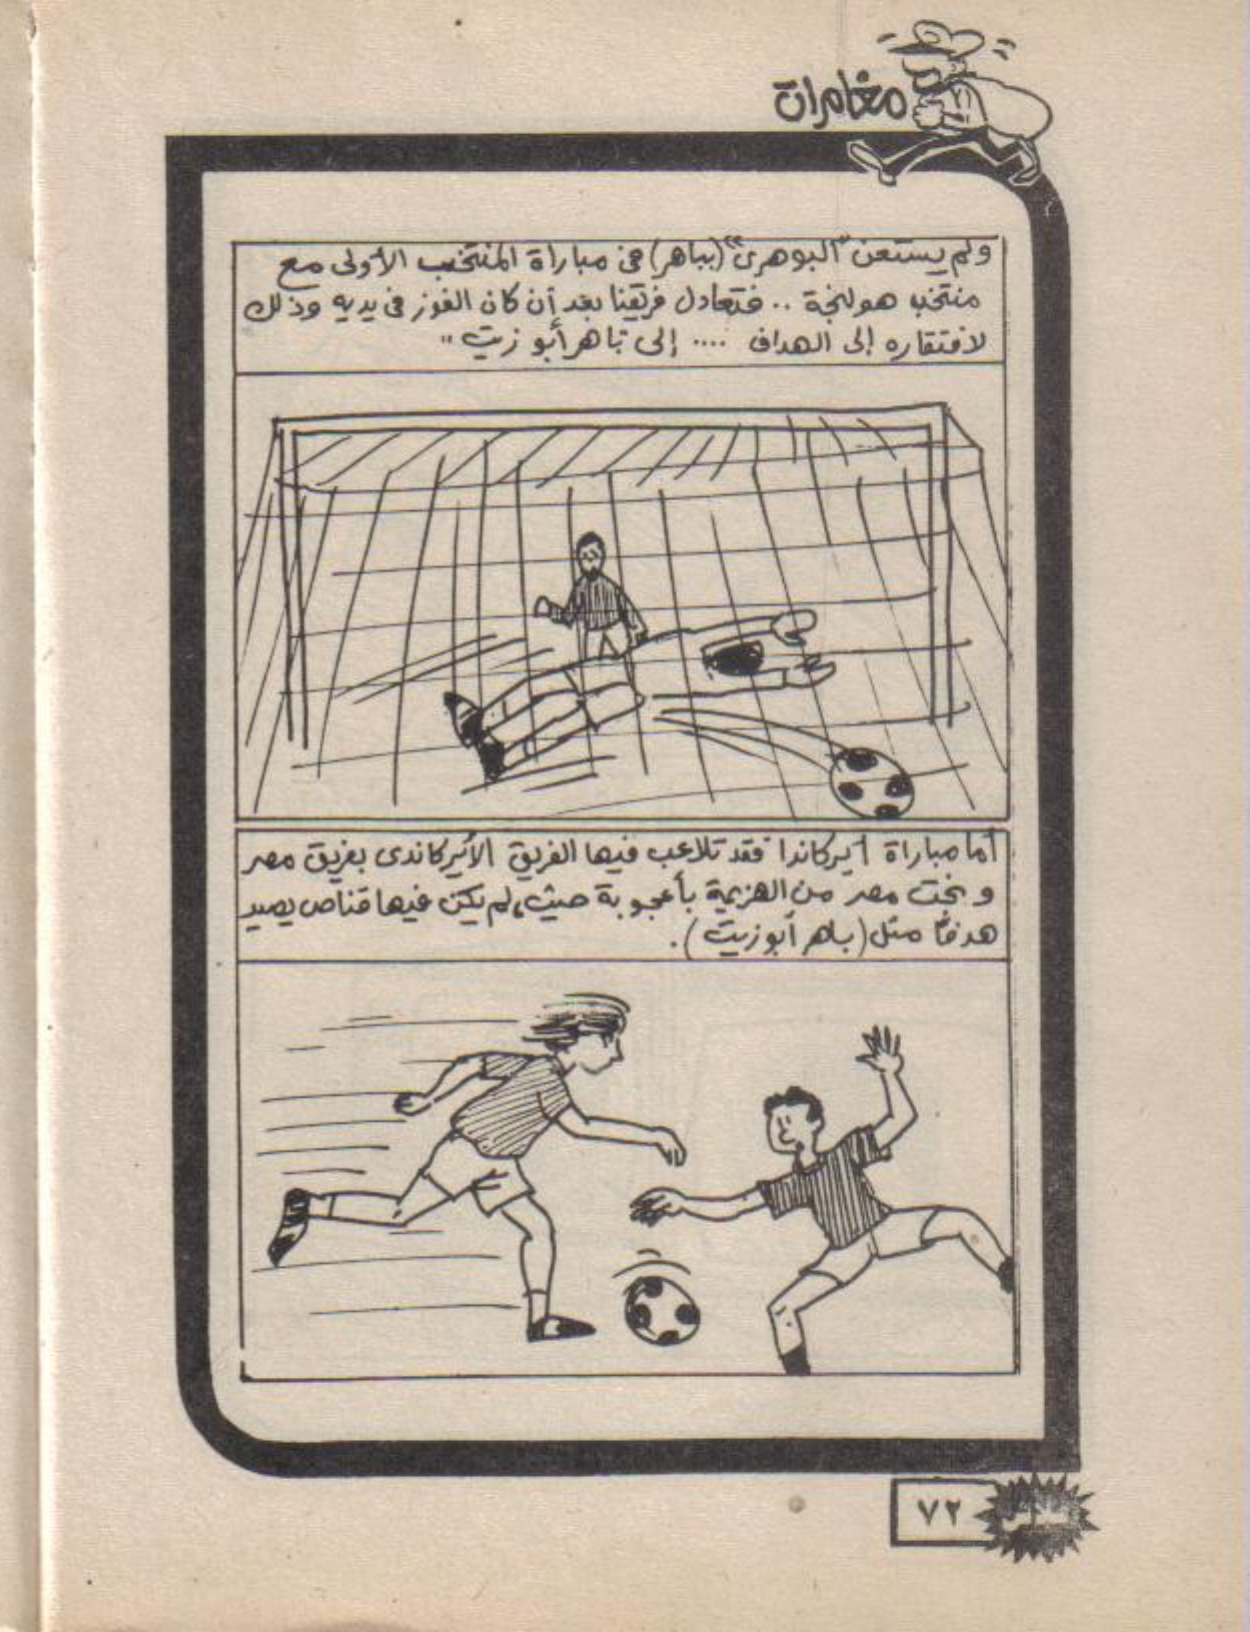 مغامرات
ولم يستعن "البوهرى" (بباهر) فى مباراة المنتخب الأولى مع
منتخب هولنجة .. فتعادل فريقنا بعد أن كان الفوز فى يديه وذلك
لافتقاره إلى الهداف .... إلى باهر أبو زيت ..
أما مباراة أيركاندا فقد تلاعب فيها الفريق الأيركاندى بفريق مصر
ونجت مصر من الهزيمة بأعجوبة حيث لم يكن فيها قناص يصيد
هدفًا مثل (باهر أبو زيت).
٧٢